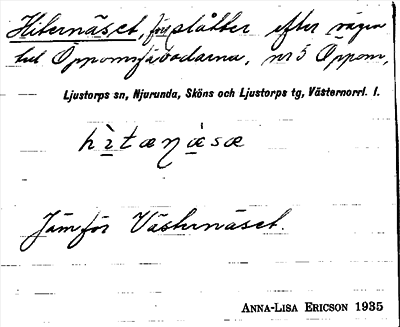 Hiternäset, förr slåtter efter vägen
till Öppomsfäbodarna, nr 5 Öppom,
Ljustorps sn, Njurunda, Sköns och Ljustorps tg, Västernorrl. l.
hìtæŋæ̀sæ
Jämför Västernäset.
ANNA-LISA ERICSON 1935